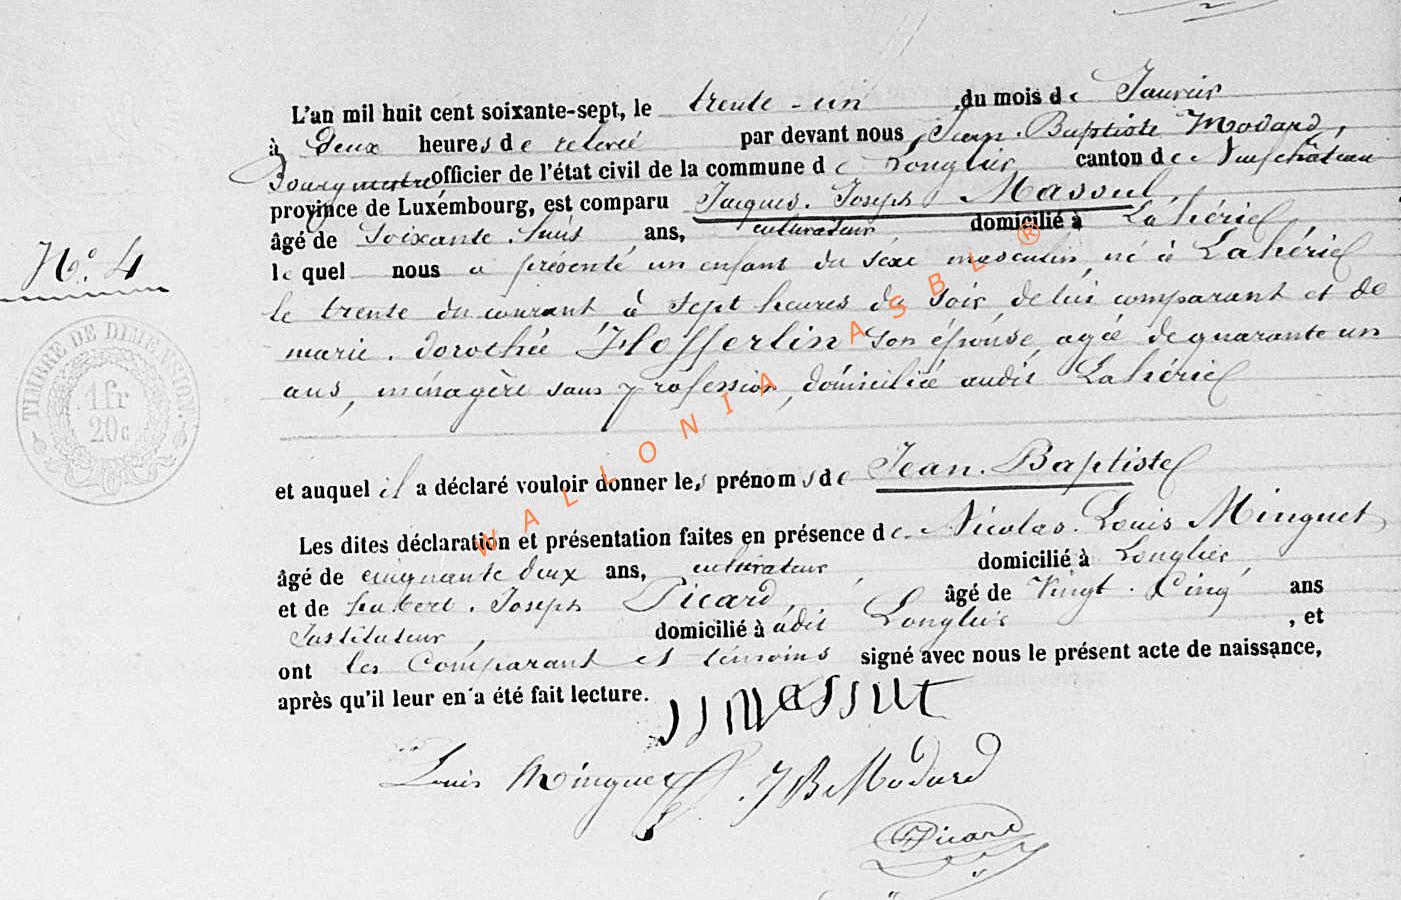 L'an mil huit cent soixante-sept, le trente-un du mois de Janvier
à Deux heures de relevée par devant nous, Jean-Baptiste Modard,
Bourgmestre officier de l'état civil de la commune de Longlier canton de Neufchâteau
province de Luxembourg, est comparu Jacques-Joseph Massul
N.° 4
âgé de Soixante-huit ans, cultivateur domicilié à Lahérie
le quel nous a présenté un enfant du séxe masculin, né à Lahérie
le trente du courant à sept heures du soir, de lui comparant et de
marie-dorothée Flosserlin son épouse, agée de quarante un
ans, ménagère sans profession, domiciliée audit Lahérie
TIMBRE DE DIMENSION.
1fr
20c
et auquel il a déclaré vouloir donner les prénoms de Jean-Baptiste
Les dites déclaration et présentation faites en présence de Nicolas-Louis Minguet
âgé de cinquante deux ans, cultivateur, domicilié à Longlier,
et de hubert-Joseph Picard, âgé de Vingt-Cinq ans
Instituteur, domicilié à audit Longlier, et
ont les Comparant et témoins signé avec nous le présent acte de naissance,
après qu'il leur en a été fait lecture. JJ Massut
Louis Minguet J B Modard
Picard
WALLONIA ASBL ®